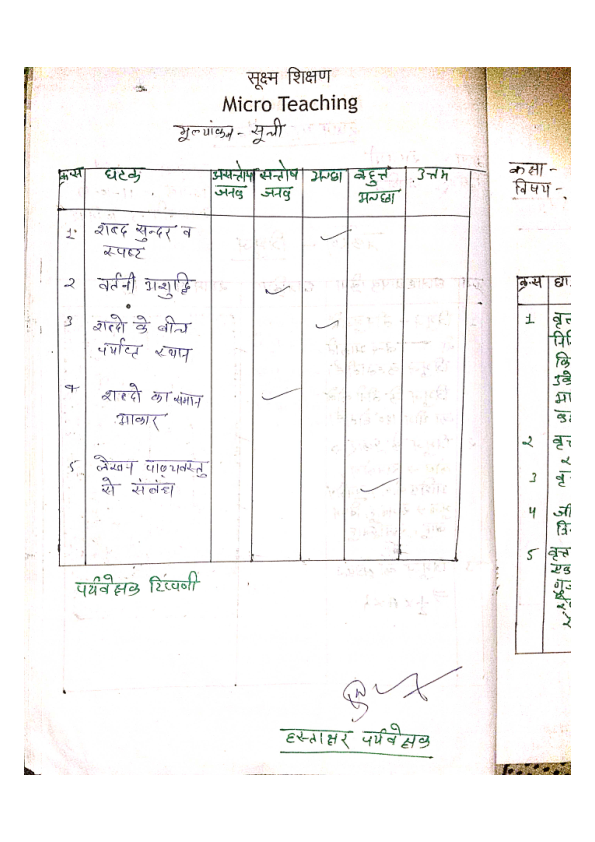 सूक्ष्म शिक्षण
Micro Teaching
मूल्यांकन - सूची
क्र.स घटक असन्तोष जनक सन्तोष जनक अच्छा बहुत अच्छा उत्तम
1 शब्द सुन्दर व
स्पष्ट
2 वर्तनी अशुद्धि
3 शब्दो के बीच
पर्याप्त स्थान
4 शब्दो का समान
आकार
5 लेखन पाठ्यवस्तु
से संबंध
पर्यवेक्षक टिप्पणी
हस्ताक्षर पर्यवेक्षक
कक्षा -
विषय -
क्र.स
1
2
3
4
5